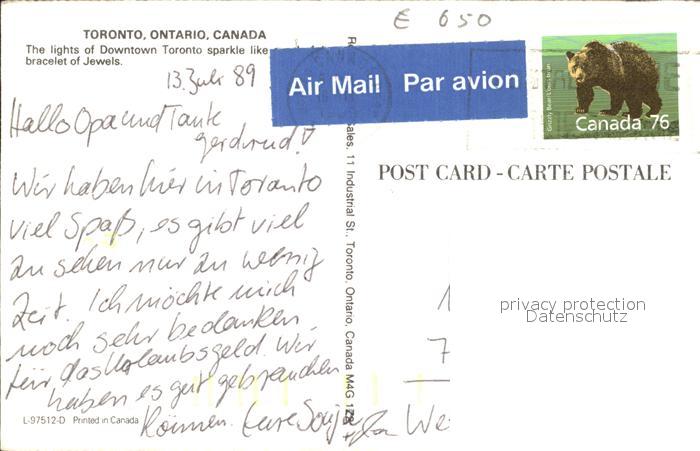 E 650
TORONTO, ONTARIO, CANADA
The lights of Downtown Toronto sparkle like
bracelet of Jewels.
13. Juli 89
Air Mail Par avion
Grizzly Bear/L'ours brun
Canada 76
POST CARD - CARTE POSTALE
Hallo Opa und Tante
Gerdrud!
Wir haben hier in Toronto
viel Spaß, es gibt viel
zu sehen nur zu wenig
Zeit. Ich möchte mich
noch sehr bedanken
für das Urlaubsgeld. Wir
haben es gut gebrauchen
können. Eure
We
L-97512-D Printed in Canada
ales, 11 Industrial St., Toronto, Ontario, Canada M4G 1Z8
1
7
privacy protection
Datenschutz